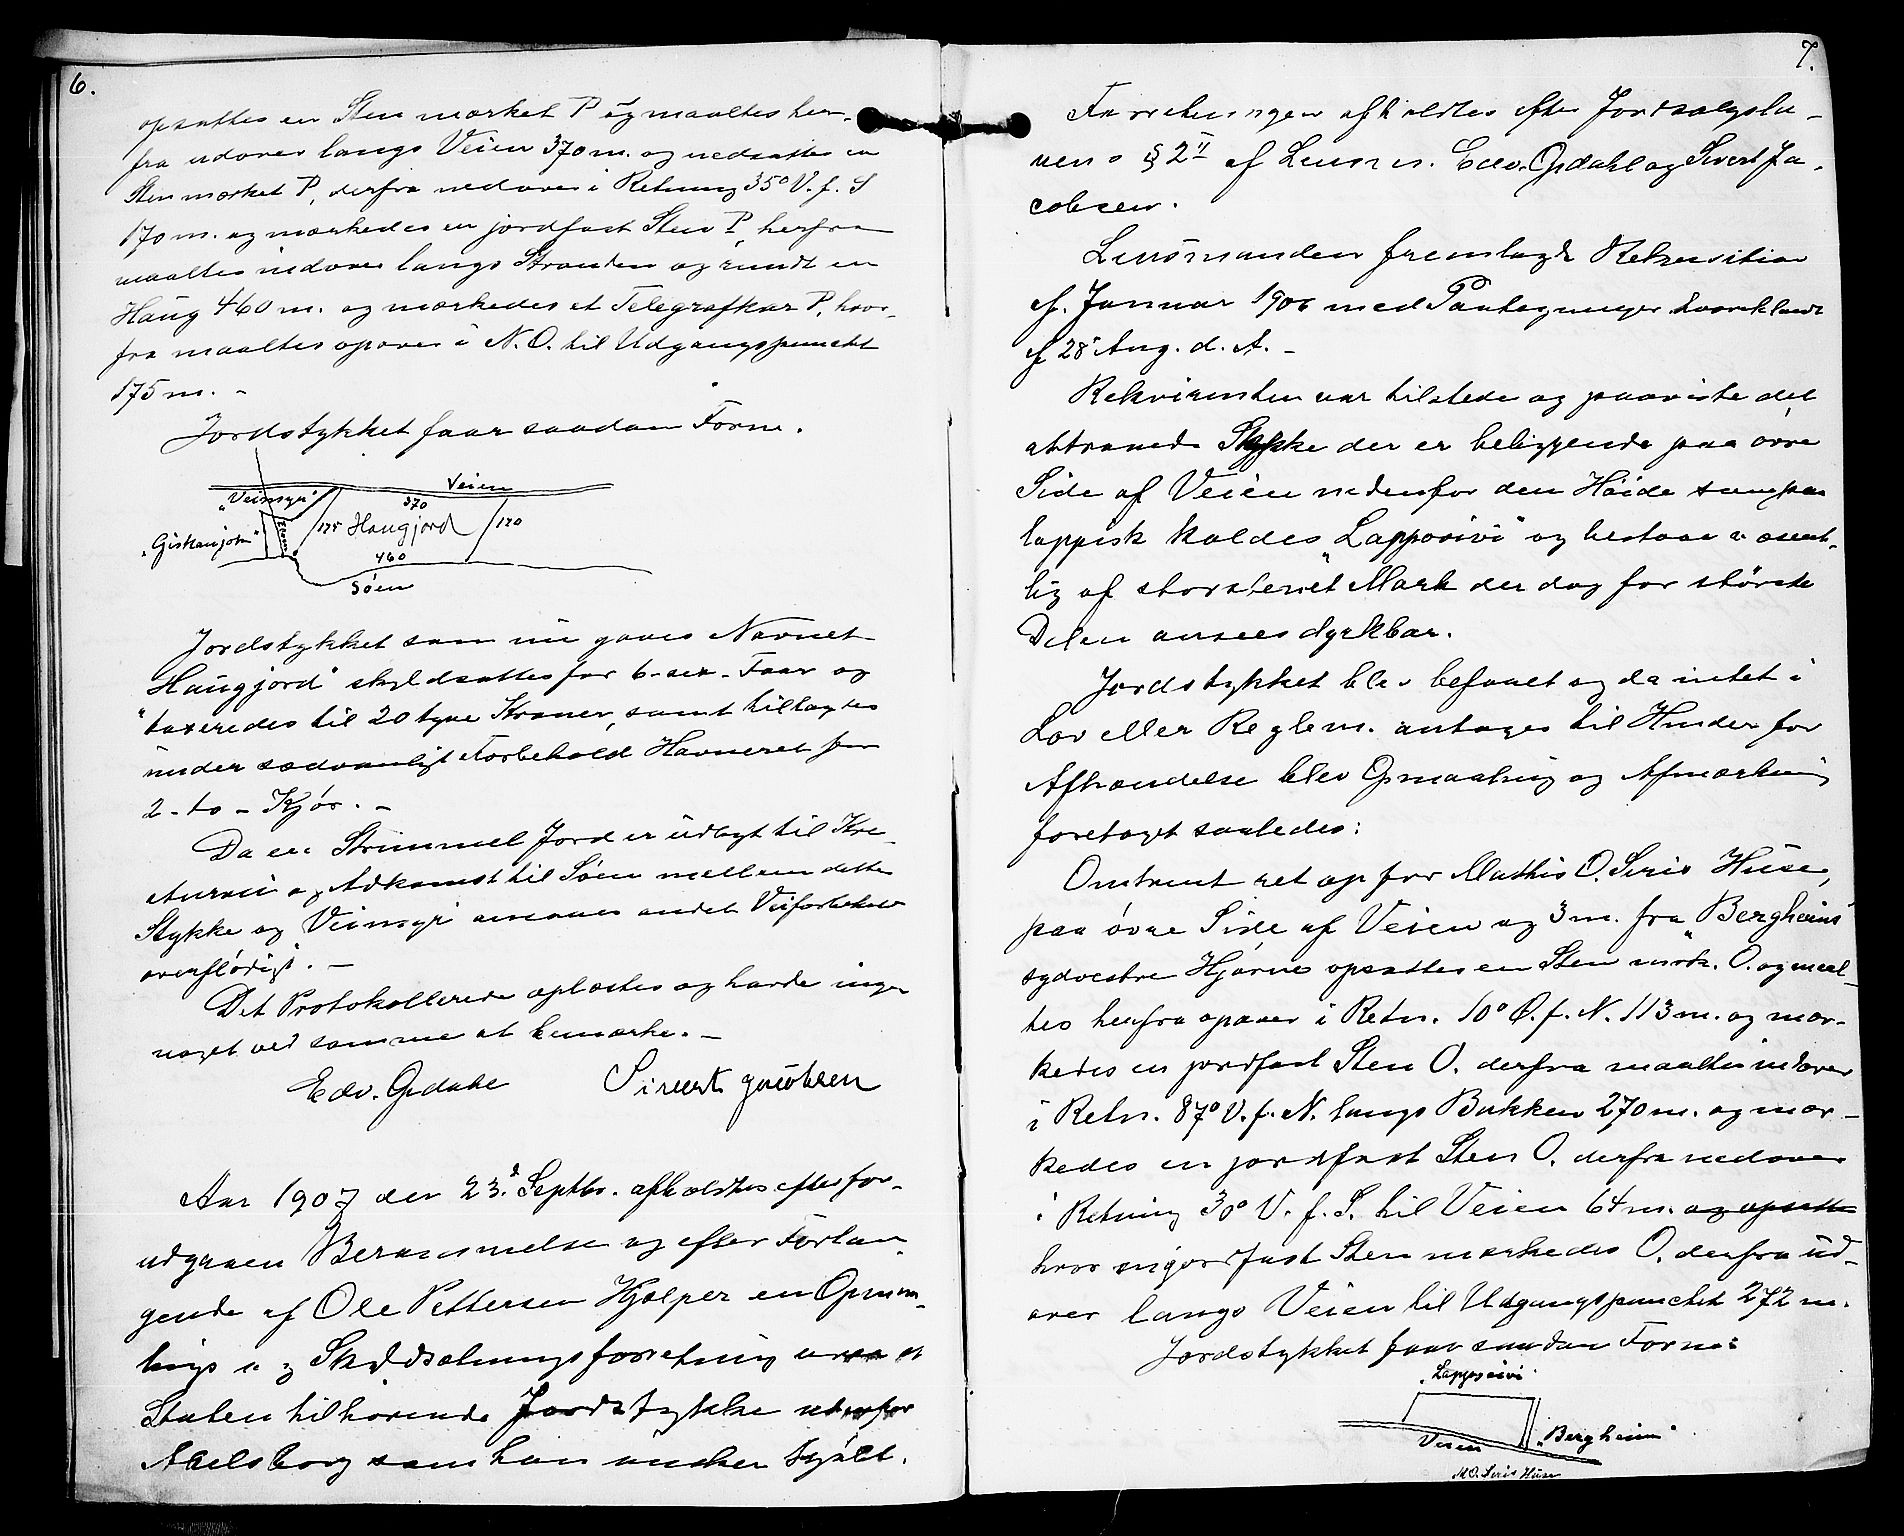 6.
opsattes en Sten mærket P og maaltes her-
fra udover langs Veien 370 m. og nedsattes en
Sten mærket P, derfra nedover i Retning 35° V. f. S
170 m. og mærkedes en jordfast Sten P, herfra
maaltes indover langs Stranden og rundt en
Haug 460 m. og mærkedes et Telegrafkar P, hvor-
fra maaltes opover i N. O. til Udgangspunctet
175 m. -
Jordstykket faar saadan Form.
Veien
"Veimyr"
370
"Giskanjok"
175 Haugjord
170
460
Søen
Jordstykket som nu gaves Navnet
"Haugjord" skyldsattes for 6 - sex - Øre og
taxeredes til 20 tyve Kroner, samt tillagdes
under sædvanligt Forbehold Havneret for
2 - to - Kjør. -
Da en Strimmel Jord er udlagt til Kre-
aturvei og Adkomst til Søen mellem dette
Stykke og Veimyr ansaaes andet Veiforbehold
overflødigt. -
Det Protokollerede oplæstes og havde ingen
noget ved samme at bemærke. -
Edv. Opdahl Sivert Jacobsen
Aar 1907 den 23. Septbr. afholdtes efter for-
udgaaen Berammelse og efter Forlan-
gende af Ole Pettersen Hjelper en Opmaa-
lings og Skyldsætningsforretning over et
Staten tilhørende Jordstykke
som han ønsker kjøbt.
7.
Forretningen afholdtes efter Jordsalgslo-
vens § 2 af Lensm. Edv. Opdahl og Sivert Ja-
cobsen.
Lensmanden fremlagde Rekvisition
af Januar 1906 med Paategninger
af 28 Aug. d. A. -
Rekvirenten var tilstede og paaviste det
attraaede Stykke der er beliggende paa øvre
Side af Veien nedenfor den Høide som paa
lappisk kaldes "Lapposivi" og bestaar væsent-
lig af storstenet Mark der dog for største
Delen ansees dyrkbar.
Jordstykket blev befaret og da intet i
Lov eller Reglem. antages til Hinder for
Afhændelse blev Opmaaling og Afmærkning
foretaget saaledes:
Omtrent ret op for Mathis O. Siris Huse,
paa øvre Side af Veien og 3 m. fra "Bergheims"
sydvestre Hjørne opsattes en Sten mærk. O. og maal-
tes herfra opover i Retn. 10° Ø. f. N. 113 m. og mær-
kedes en jordfast Sten O. derfra maaltes indover
i Retn. 87° V. f. N. langs Bakken 270 m. og mær-
kedes en jordfast Sten O. derfra nedover
i Retning 30° V. f. S. til Veien 64 m. og opsatte
hvor en jordfast Sten mærkedes O. derfra ud-
over langs Veien til Udgangspunctet 272 m.
Jordstykket faar saadan Form:
"Lapposivi"
Veien
"Bergheim"
M. O. Siris Huse